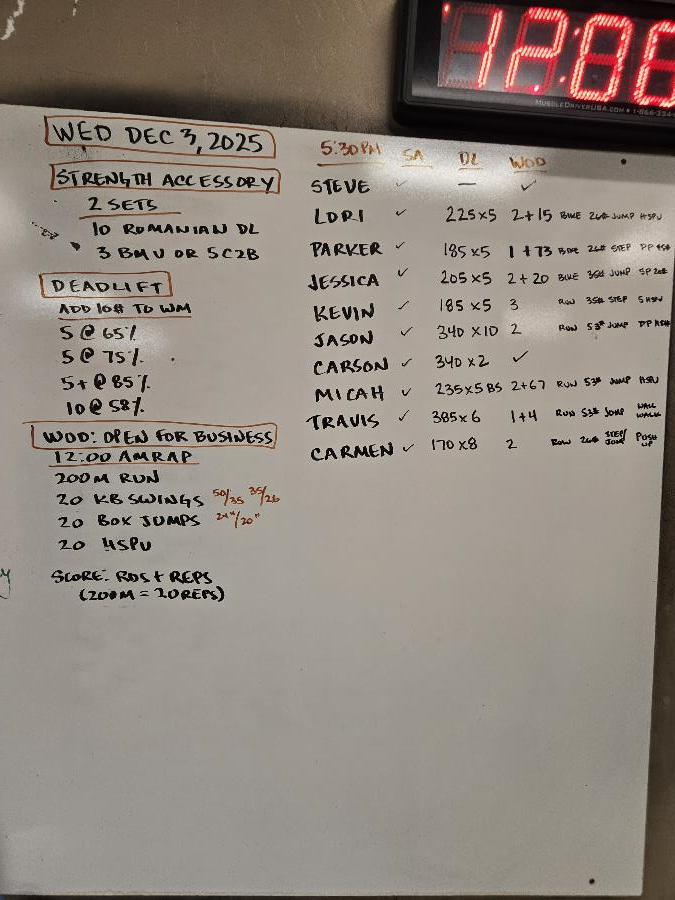 12:00
MUSCLEDRIVERUSA.COM • 1-866-
WED DEC 3, 2025
STRENGTH ACCESSORY
2 SETS
10 ROMANIAN DL
3 BMU OR 5 C2B
DEADLIFT
ADD 10# TO WM
5 @ 65%
5 @ 75%
5+ @ 85%
10 @ 58%
WOD: OPEN FOR BUSINESS
12:00 AMRAP
200M RUN
20 KB SWINGS 50/35 35/26
20 BOX JUMPS 24"/20"
20 HSPU
SCORE: RDS + REPS
(200M = 20 REPS)
5:30 PM SA DL WOD
STEVE ✓ — ✓
LORI ✓ 225x5 2+15 BIKE 26# JUMP HSPU
PARKER ✓ 185x5 1+73 BIKE 26# STEP DP
JESSICA ✓ 205x5 2+20 BIKE 35# JUMP SP 20#
KEVIN ✓ 185x5 3 ROW 35# STEP
JASON ✓ 340x10 2 RUN 53# JUMP DP
CARSON ✓ 340x2 ✓
MICAH ✓ 235x5 BS 2+67 RUN 53# JUMP HSPU
TRAVIS ✓ 385x6 1+4 RUN 53# JUMP WALL WALK
CARMEN ✓ 170x8 2 ROW 26# STEP/JUMP PUSH UP